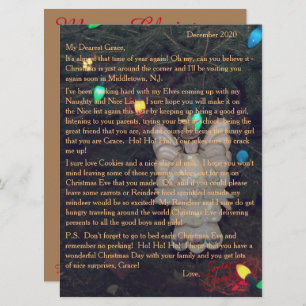 December 2020
My Dearest Grace,
It's almost that time of year again! Oh my, can you believe it
Christmas is just around the corner and I'll be visiting you
again soon in Middletown, N.J.
I've been working hard with my Elves coming up with my
Naughty and Nice List. I sure hope you will make it on
the Nice list again this year by keeping up being a good girl,
listening to your parents, trying your best at school, being the
great friend that you are, and of course being the funny girl
that you are Grace. Ho! Ho! Ho! Your jokes sure do crack
me up!
I sure love Cookies and a nice glass of milk. I hope you won't
mind leaving some of those yummy cookies out for me on
Christmas Eve that you make. Oh, and if you could please
leave some carrots or Reindeer food sprinkled outside my
reindeer would be so excited! My Reindeer and I sure do get
hungry traveling around the world Christmas Eve delivering
presents to all the good boys and girls!
P.S. Don't forget to go to bed early Christmas Eve and
remember no peeking! Ho! Ho! Ho! I hope you have a
wonderful Christmas Day with your family and you get lots
of nice surprises, Grace!
Love,